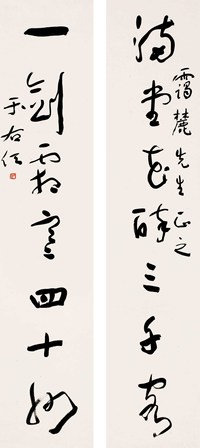 满堂花醉三千客
霭麓先生正之
一剑霜寒四十州
于右任